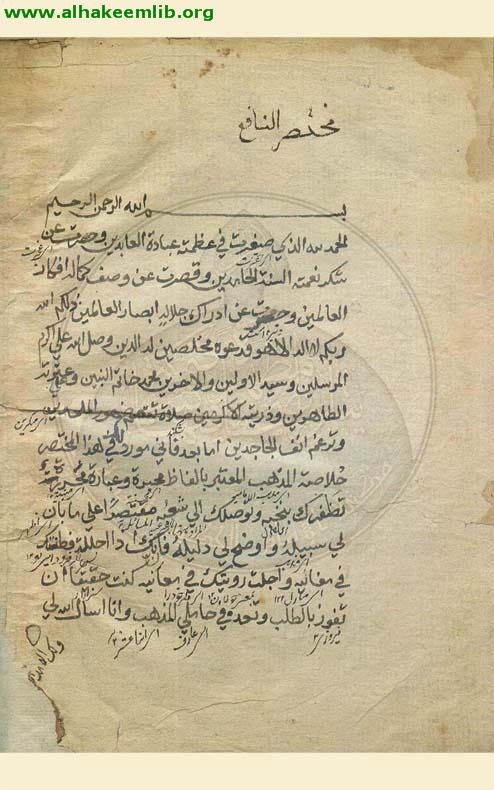 www.alhakeemlib.org
مختصر النافع
بسم الله الرحمن الرحيم
الحمد لله الذي صغرت في عظمته عبادة العابدين وحصرت عن
شكر نعمته السنة الحامدين وقصرت عن وصف كماله افكار
العالمين وحسرت عن ادراك جلاله ابصار العالمين ذلكم الله
ربكم لا اله الا هو فدعوه مخلصين له الدين وصل الله على اكرم
المرسلين وسيد الاولين والاخرين محمد خاتم النبيين وعلى عترته
الطاهرين وذريته الاكرمين صلاة تقصم ظهور الملحدين
وترغم انف الجاحدين اما بعد فاني مورد لك في هذا المختصر
خلاصة المذهب المعتبر بالفاظ محبرة وعبارة محررة
تظفرك بنخبه وتوصلك الى شعبه مقتصرا على ما بان
لي سبيله واوضح لي دليله فان احللت فطنتك
في مغانيه واجلت رويتك في معانيه كنت حقيقا ان
تفوز بالطلب وتعد في حاملي المذهب وانا اسال الله لي
ولك الامداد